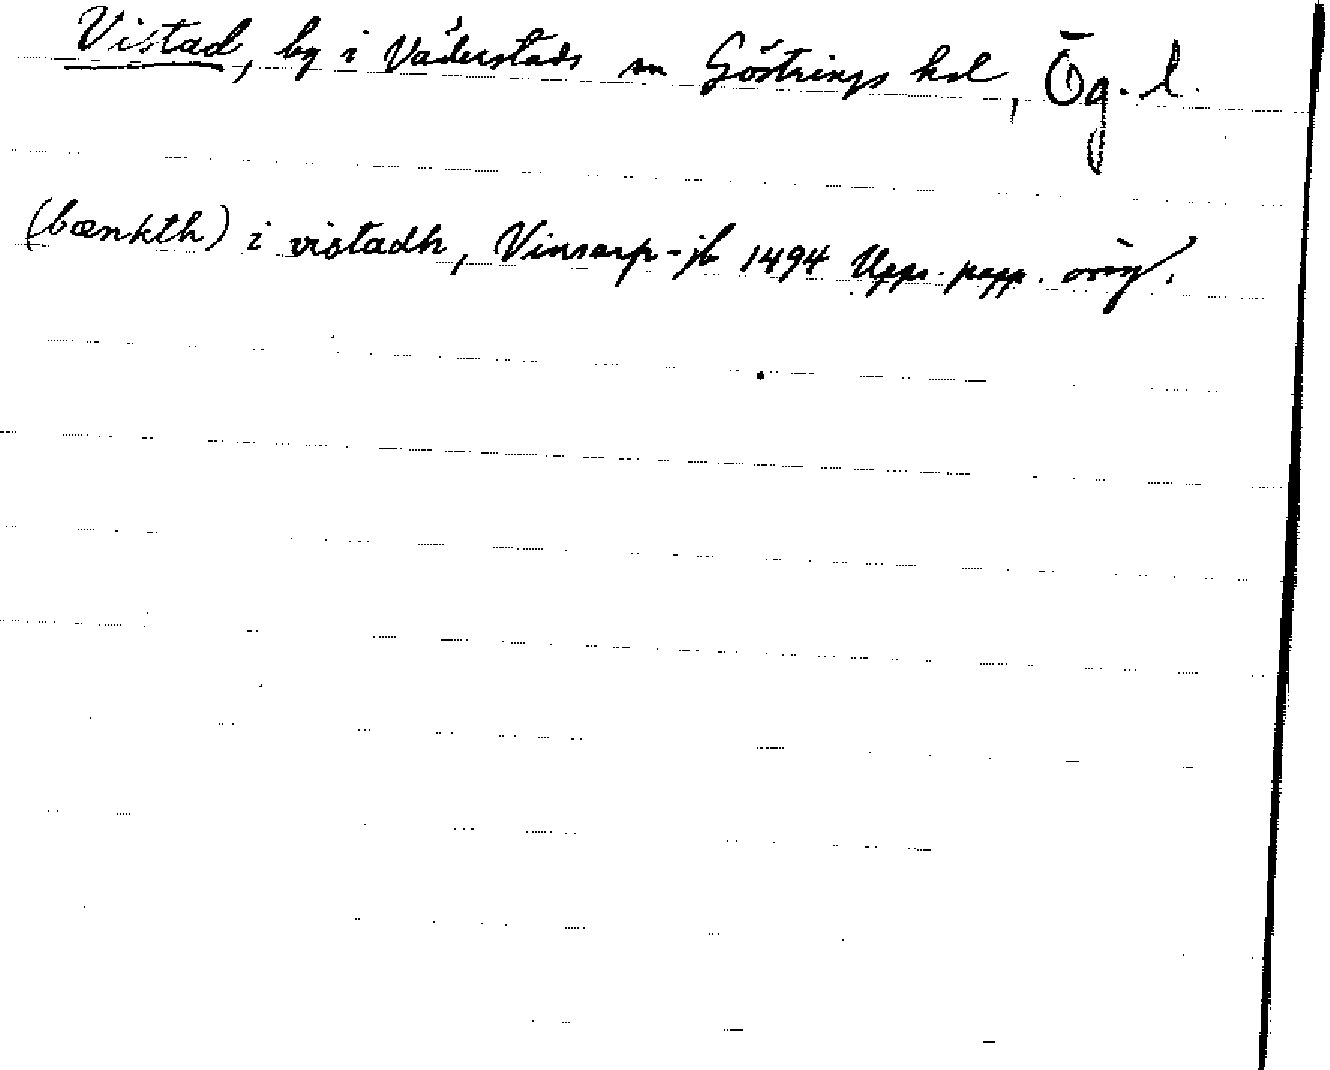 Vistad, by i Väderstads sn Göstrings hd, Ög. l.
(bænkth) i vistadh, Vinsarp-jb 1494 Upps. papp. orig.